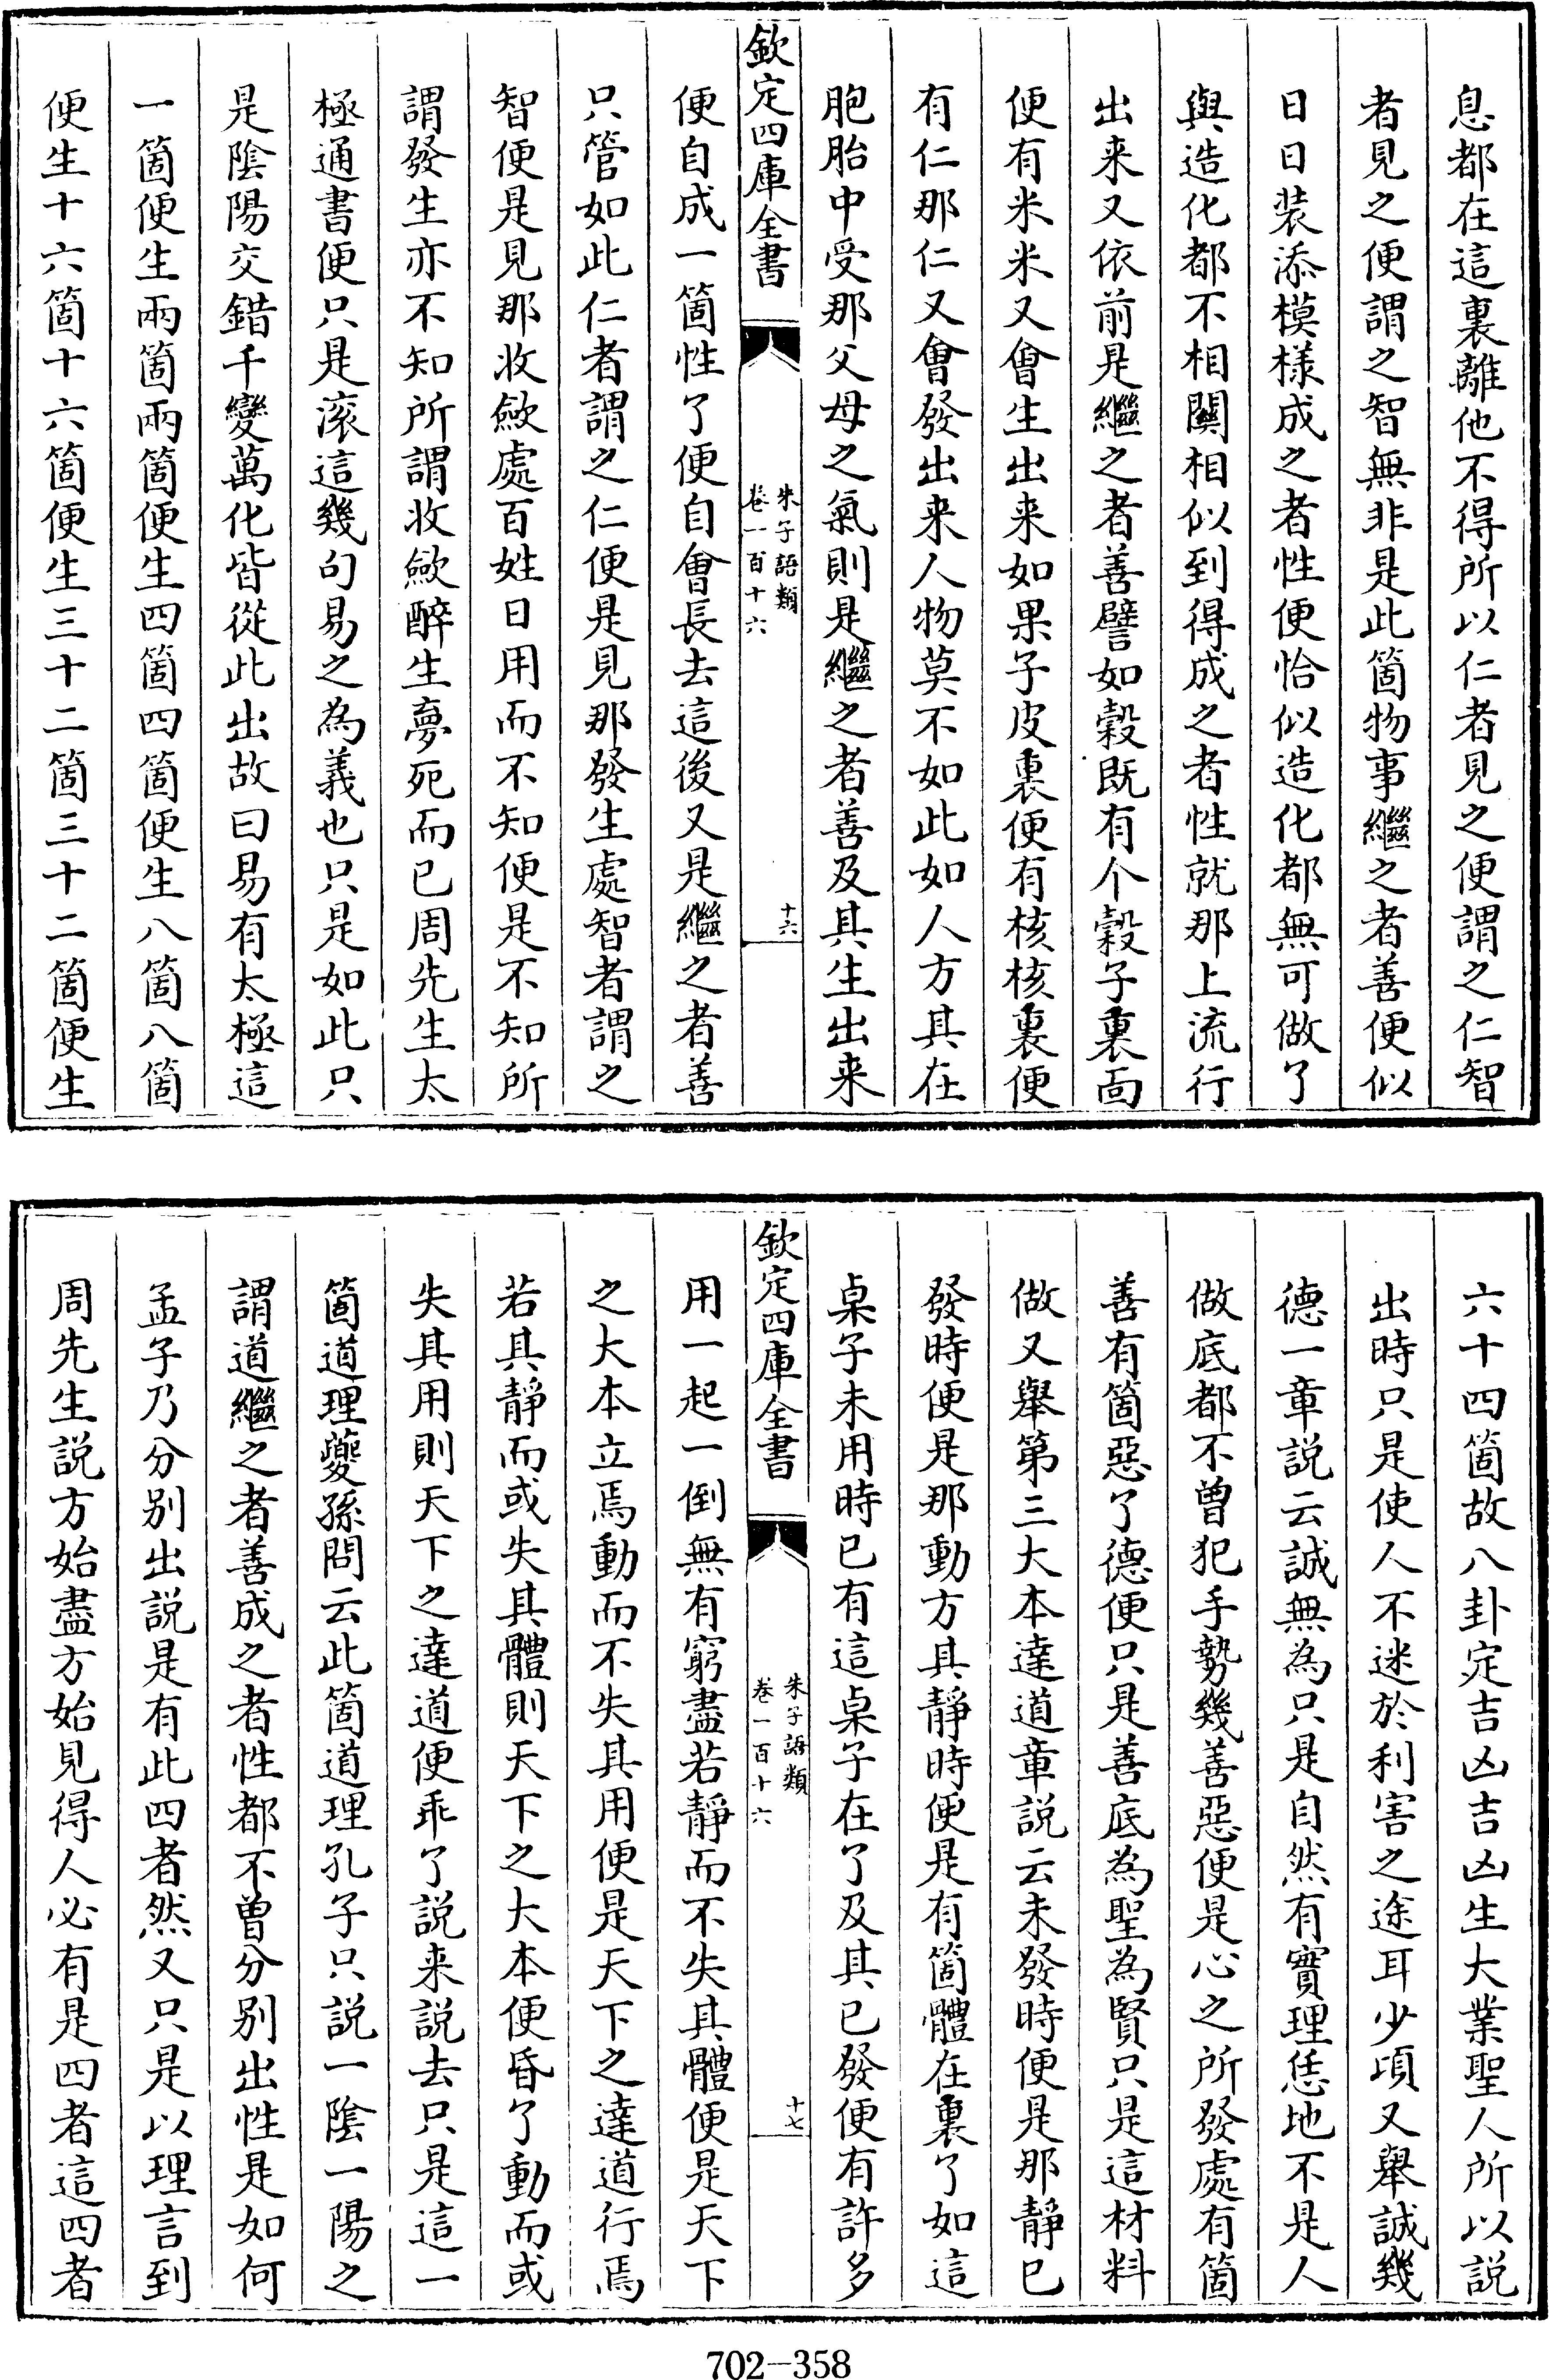 息都在這裏離他不得所以仁者見之便謂之仁智
者見之便謂之智無非是此箇物事繼之者善便似
日日裝添模樣成之者性便恰似造化都無可做了
與造化都不相關相似到得成之者性就那上流行
出来又依前是繼之者善譬如穀既有个穀子裏面
便有米米又會生出来如果子皮裏便有核核裏便
有仁那仁又會發出来人物莫不如此如人方其在
胞胎中受那父母之氣則是繼之者善及其生出来
欽定四庫全書
朱子語類
卷一百十六
十六
便自成一箇性了便自會長去這後又是繼之者善
只管如此仁者謂之仁便是見那發生處智者謂之
智便是見那收斂處百姓日用而不知便是不知所
謂發生亦不知所謂收斂醉生夢死而已周先生太
極通書便只是滚這幾句易之為義也只是如此只
是陰陽交錯千變萬化皆從此出故曰易有太極這
一箇便生兩箇兩箇便生四箇四箇便生八箇八箇
便生十六箇十六箇便生三十二箇三十二箇便生
六十四箇故八卦定吉凶吉凶生大業聖人所以説
出時只是使人不迷於利害之途耳少頃又舉誠幾
德一章説云誠無為只是自然有實理恁地不是人
做底都不曽犯手勢幾善惡便是心之所發處有箇
善有箇惡了德便只是善底為聖為賢只是這材料
做又舉第三大本達道章説云未發時便是那靜已
發時便是那動方其靜時便是有箇體在裏了如這
桌子未用時已有這桌子在了及其已發便有許多
欽定四庫全書
朱子語類
卷一百十六
十七
用一起一倒無有窮盡若靜而不失其體便是天下
之大本立焉動而不失其用便是天下之達道行焉
若其靜而或失其體則天下之大本便昏了動而或
失其用則天下之達道便乖了説来説去只是這一
箇道理䕫孫問云此箇道理孔子只説一陰一陽之
謂道繼之者善成之者性都不曽分别出性是如何
孟子乃分别出説是有此四者然又只是以理言到
周先生説方始盡方始見得人必有是四者這四者
702-358